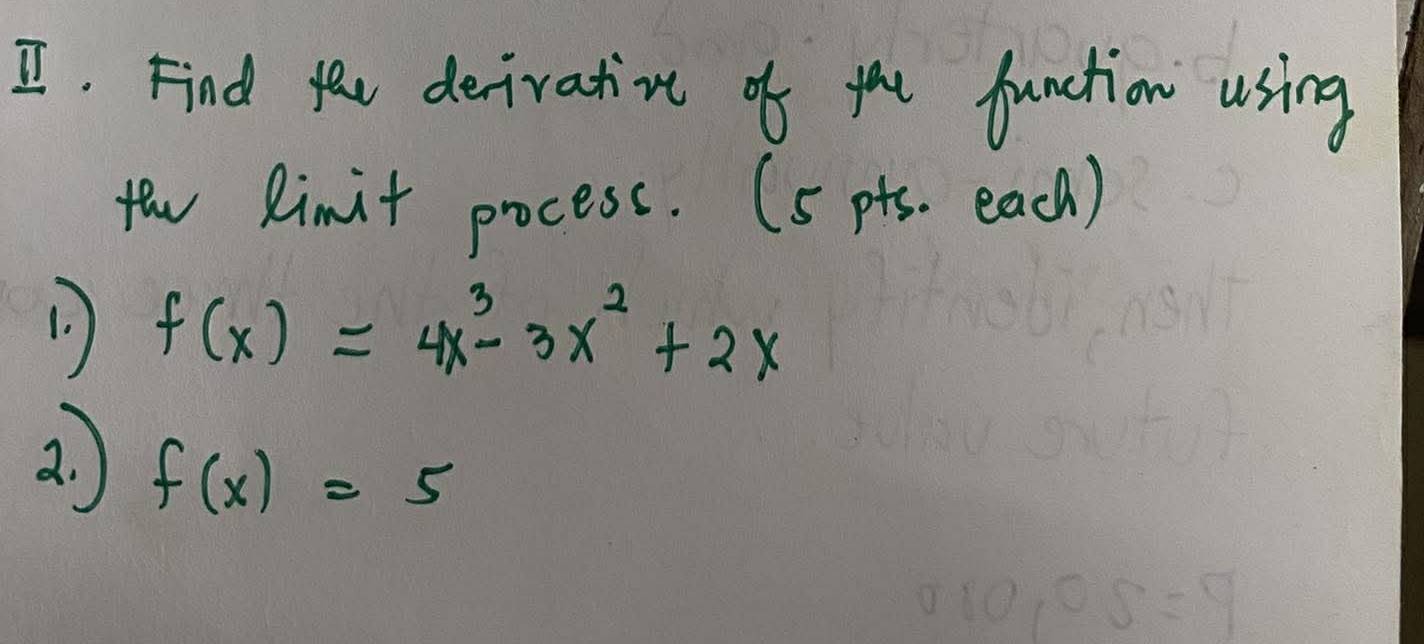 II. Find the derivative of the function using
the limit process. (5 pts. each)
1.) f(x) = 4x³ - 3x² + 2x
2.) f(x) = 5